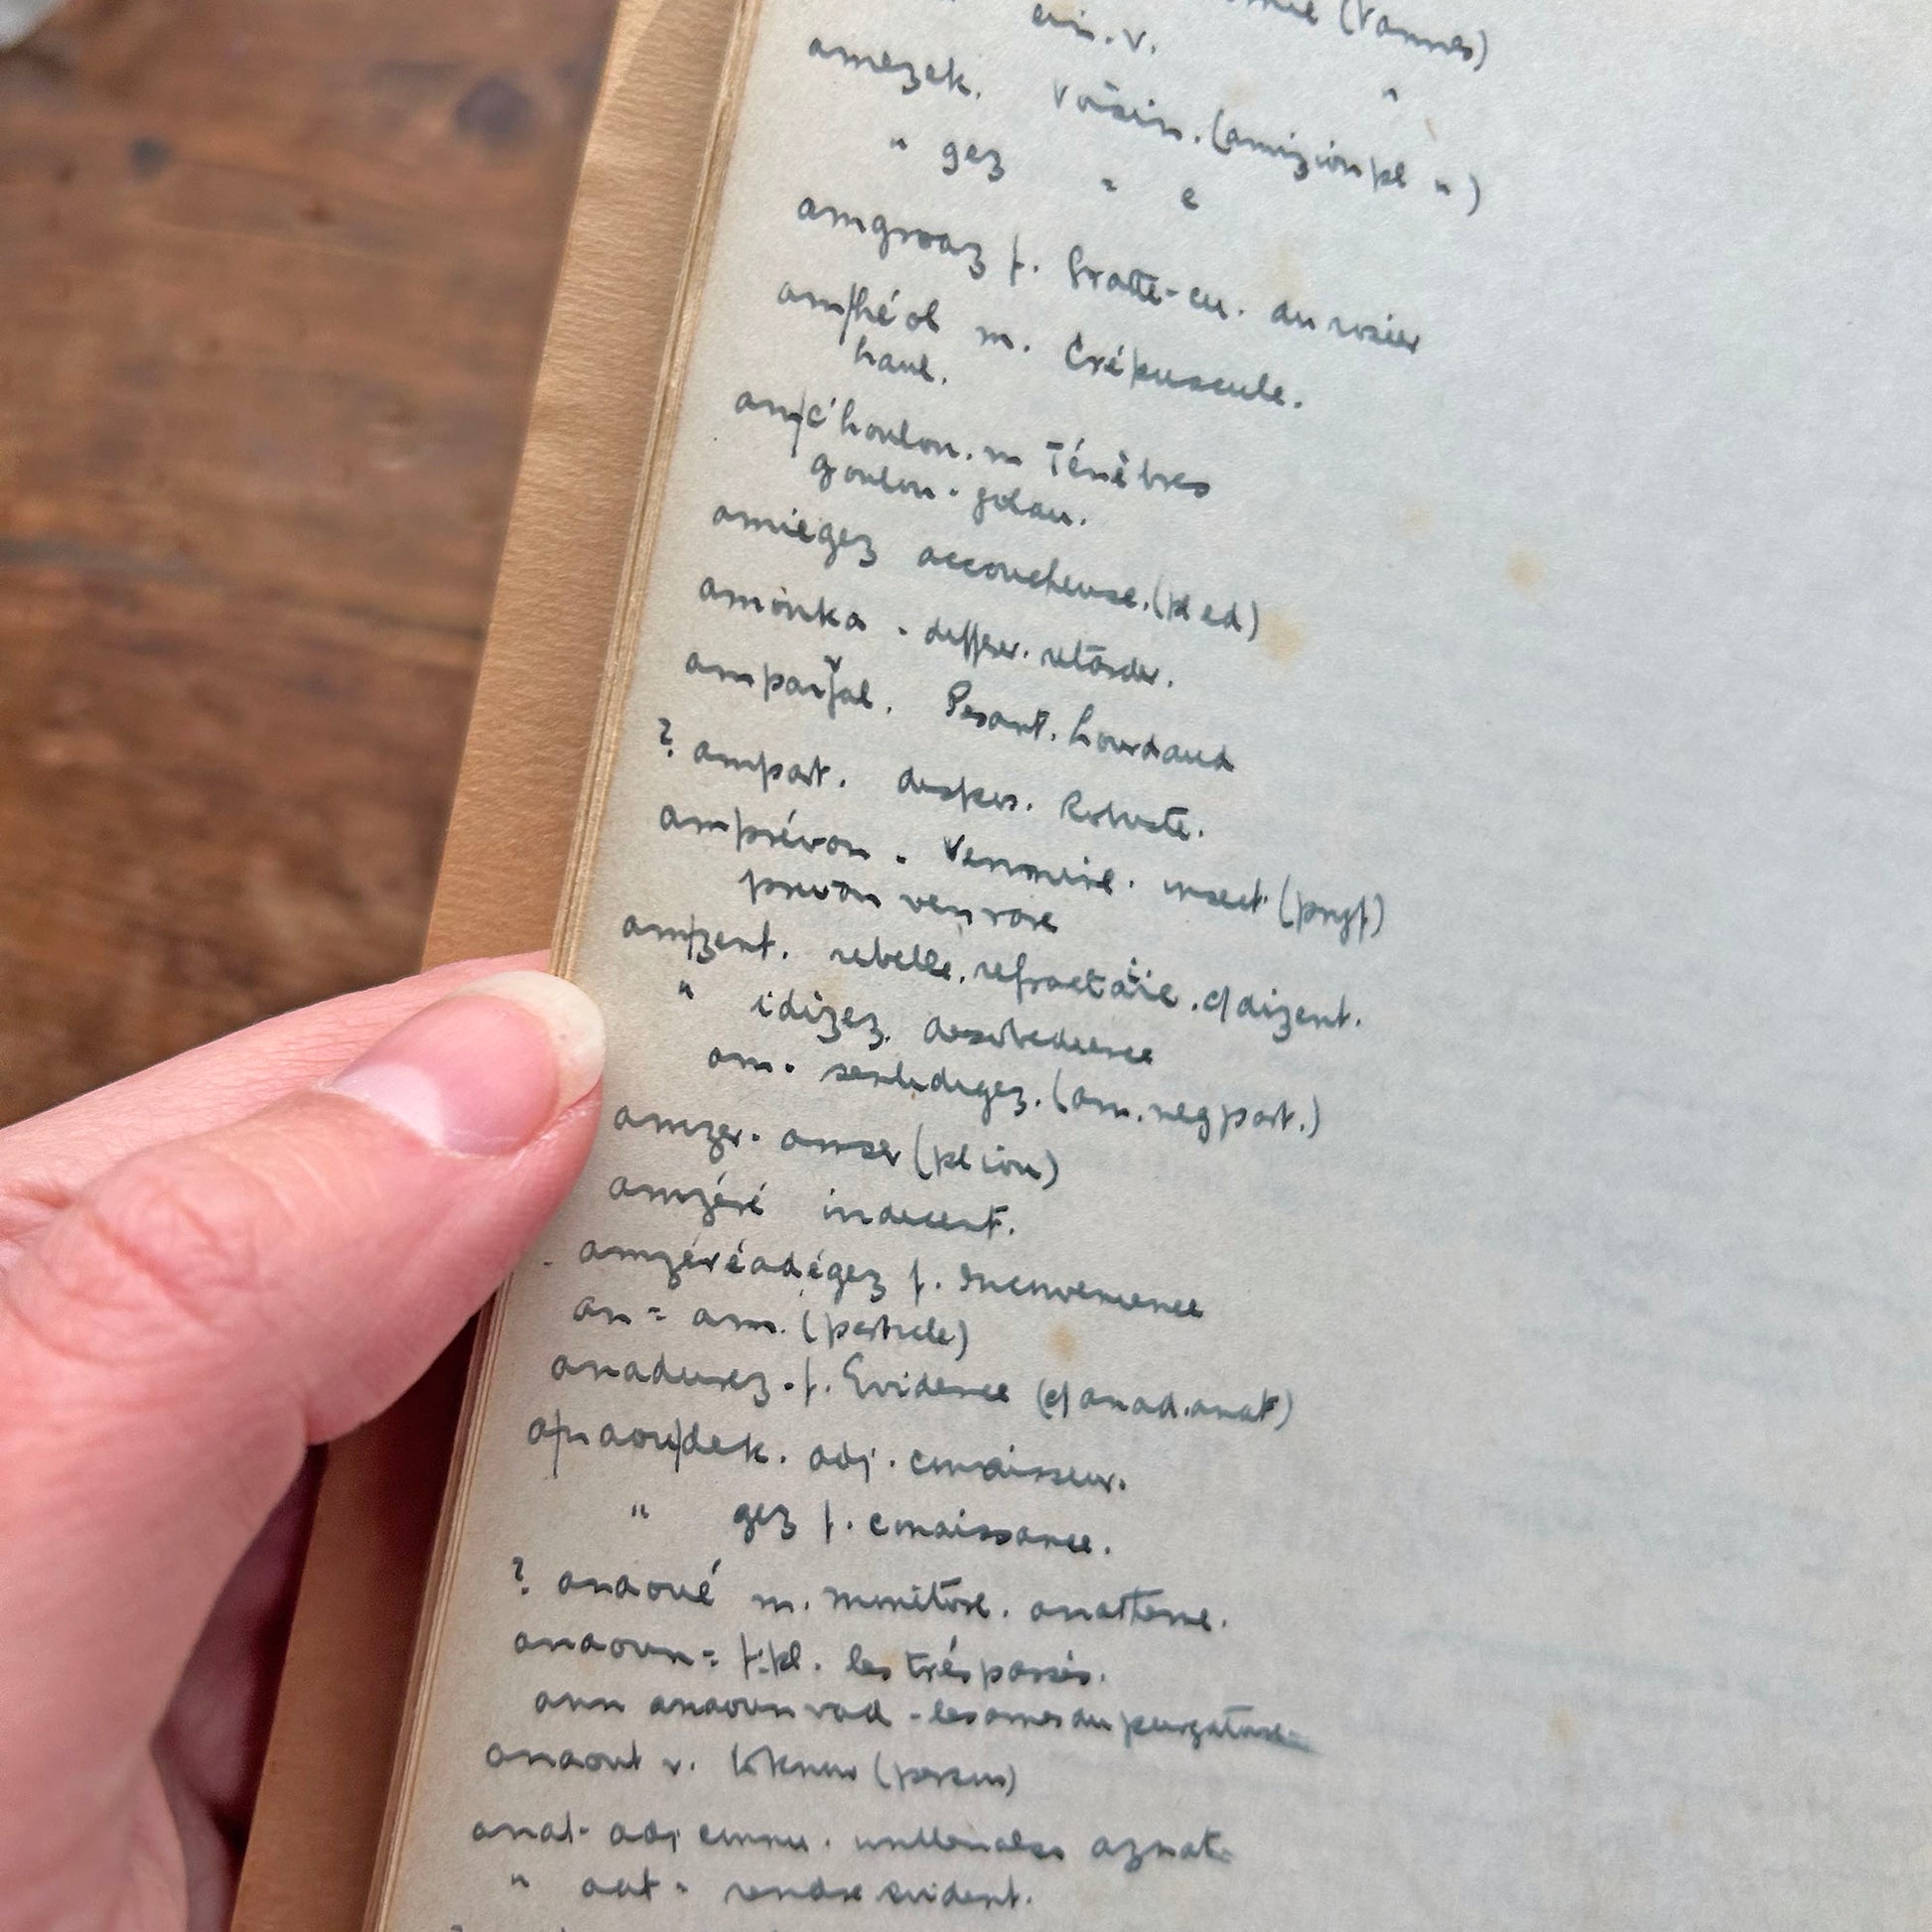 (Vannes)
ein. v.
amezek. Voisin. (amizion pl " )
" gez " e
amgroaz f. Gratte-cu. du rosier
am/héol m. Crépuscule.
haul.
am/c'houlou. m Ténèbres
goulou. golau.
amiégez accoucheuse. (pl ed)
amouka. differ. retarder.
ampafal. Pesant. Lourdaud
? ampart. dispos. Robuste.
amprévan. Venimeux. insect (pryf)
prevan
am/zent. rebelle. refractaire. cf dizent.
" idizez. desobedience
am. sentidigez. (am. neg part.)
amzer. amser (pl iou)
amzéré indecent.
amzéréadégez f. Inconvenance
an = am. (particle)
anadurez. f. Evidence (cf anad. anat)
anaou/dek. adj. connaisseur.
" gez f. connaissance.
? anaoué m. monitoire. anatheme.
anaoun = f. pl. les trépassés.
ann anaoun vad - les ames du purgatoire
anaout v. to know (person)
anat. adj connu. aznat.
" aat = rendre evident.